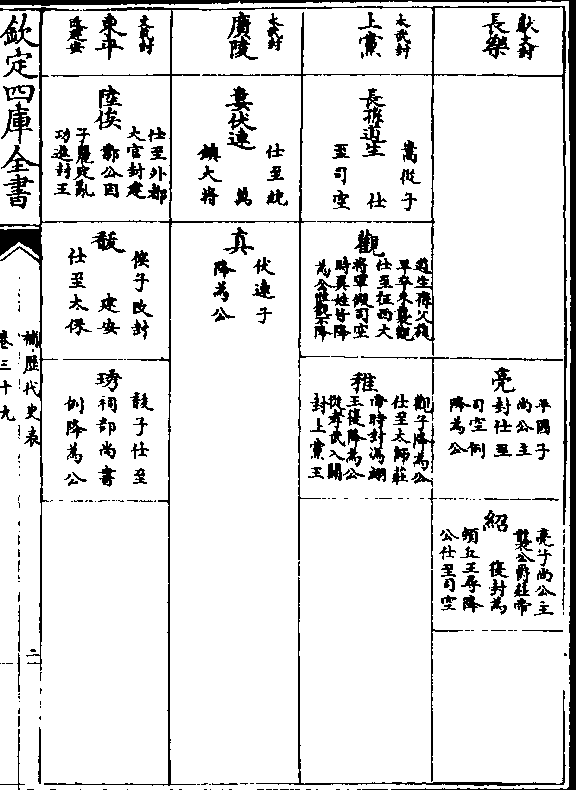 獻文封
長樂
亮
平國子
尚公主
封仕至
司空例
降為公
紹
亮子尚公主
襲公爵莊帝
復封為
頓丘王尋降
公仕至司空
太武封
上黨
長孫道生
嵩從子
仕
至司空
觀
道生孫父旃
早卒來襲觀
仕至征西大
將軍假司空
時異姓皆降
為公惟觀不降
稚
觀子降為公
仕至太師莊
帝時封馮翊
王後降為公
從孝武入關
封上黨王
太武封
廣陵
婁伏連
仕至統
萬
鎮大將
真
伏連子
降為公
太武封
東平
改建安
陸俟
仕至外都
大官封建
鄴公因
子麗定亂
功進封王
馛
俟子改封
建安
仕至太保
琇
馛子仕至
祠部尚書
例降為公
欽定四庫全書
補歷代史表
卷三十九
二